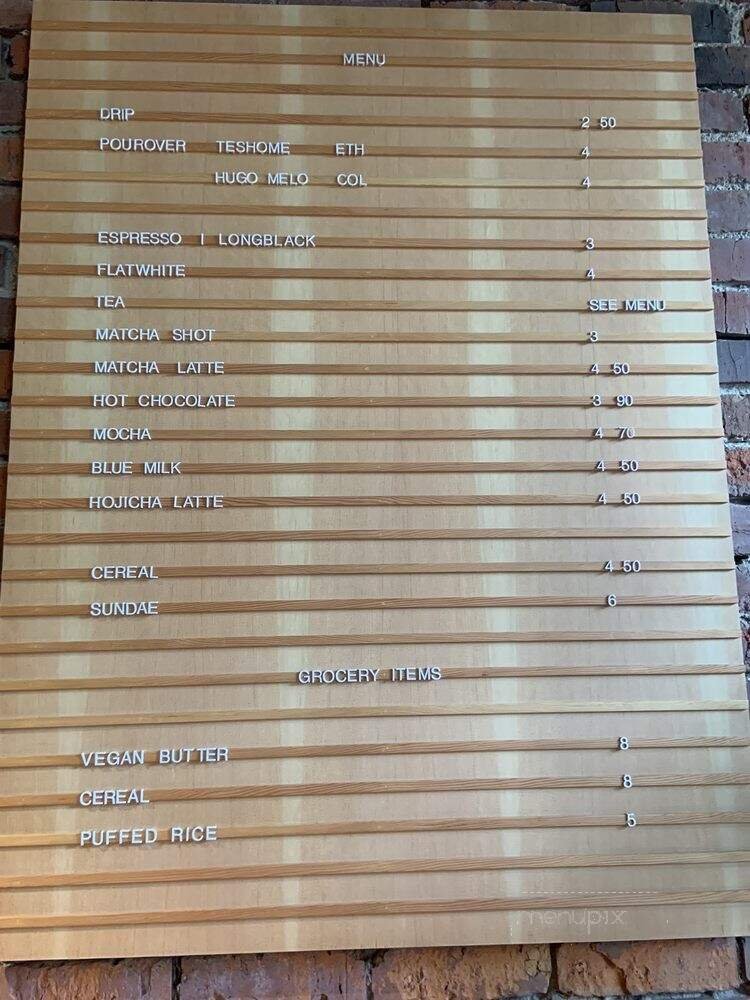 MENU
DRIP 2 50
POUROVER TESHOME ETH 4
HUGO MELO COL 4
ESPRESSO | LONGBLACK 3
FLATWHITE 4
TEA SEE MENU
MATCHA SHOT 3
MATCHA LATTE 4 50
HOT CHOCOLATE 3 90
MOCHA 4 70
BLUE MILK 4 50
HOJICHA LATTE 4 50
CEREAL 4 50
SUNDAE 6
GROCERY ITEMS
VEGAN BUTTER 8
CEREAL 8
PUFFED RICE 5
menupix